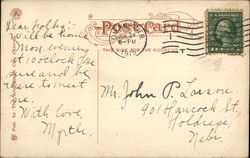 Dear folks:
Will be home
Mon. evening
at 10 o'clock
sure and be
there to meet
me.
With love,
Myrtle.
Post Card
THIS SIDE FOR THE ADDRESS
6-PM
Mr. John P. Larson
901 Hancock St.
Holdrege,
Nebr.